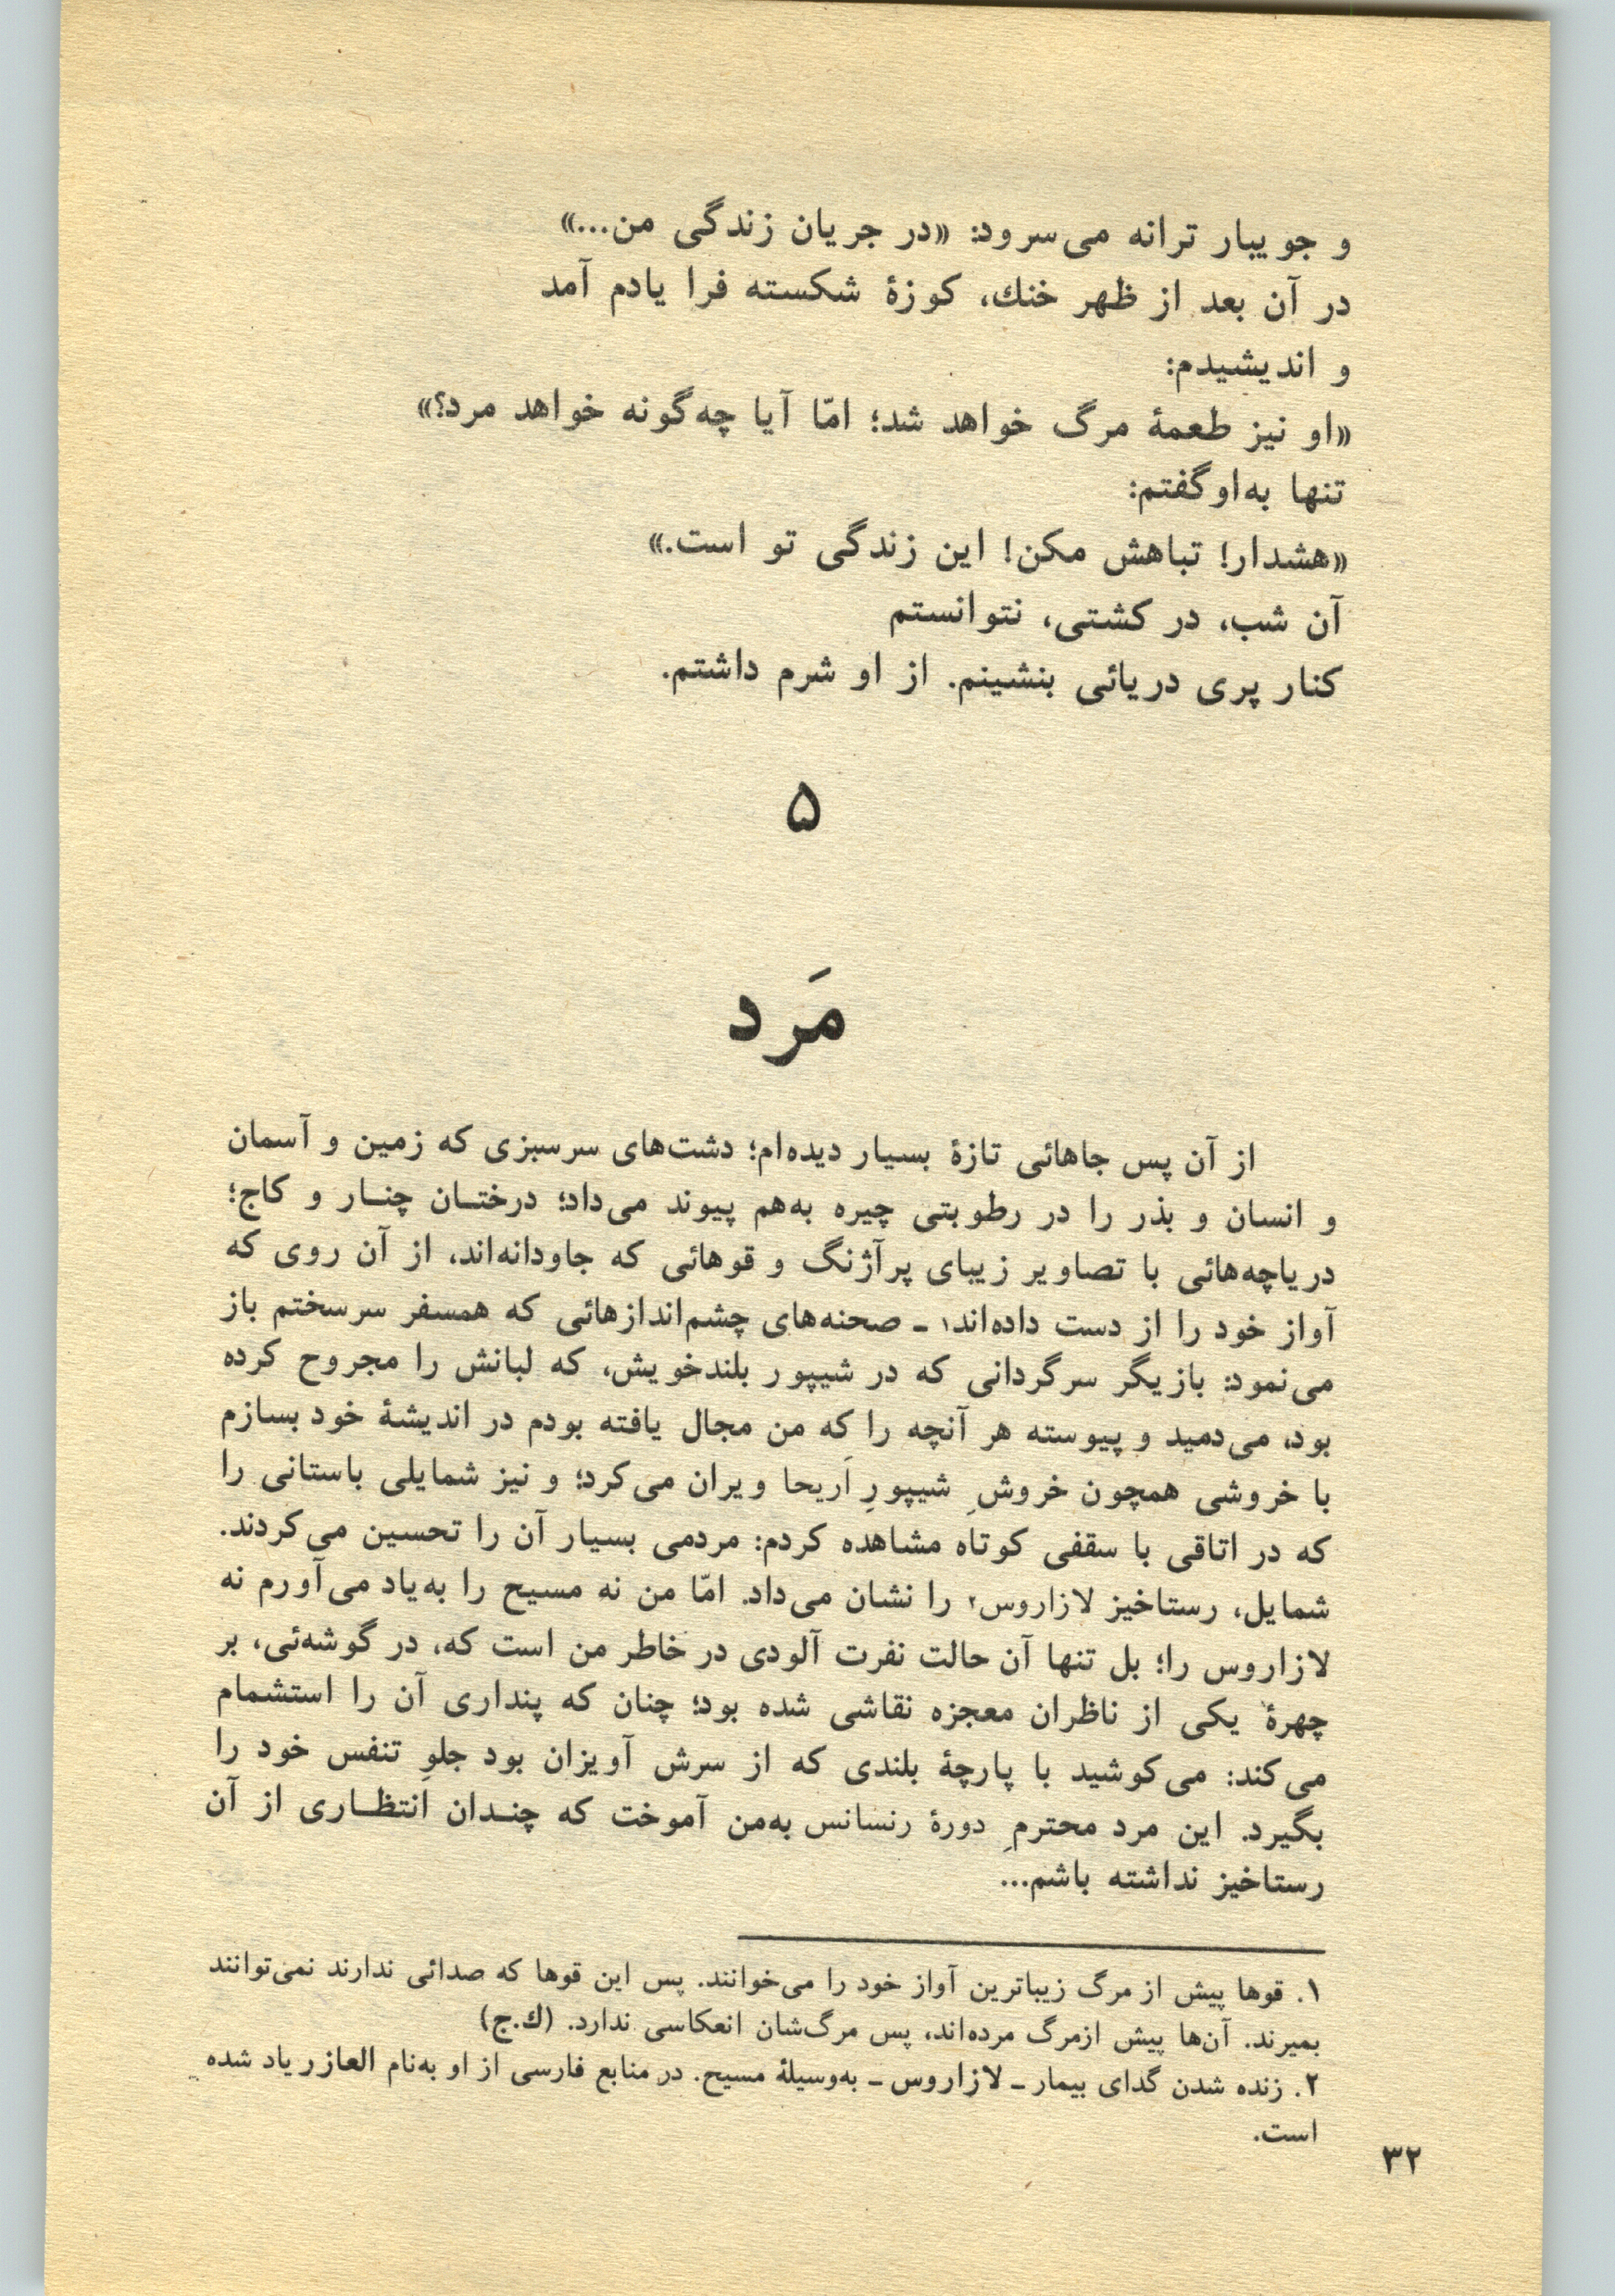 و جویبار ترانه می‌سرود: «در جریان زندگی من...»
در آن بعد از ظهر خنك، کوزهٔ شکسته فرا یادم آمد
و اندیشیدم:
«او نیز طعمهٔ مرگ خواهد شد؛ امّا آیا چه‌گونه خواهد مرد؟»
تنها به‌او گفتم:
«هشدار! تباهش مکن! این زندگی تو است.»
آن شب، در کشتی، نتوانستم
کنار پری دریائی بنشینم. از او شرم داشتم.
۵
مَرد
از آن پس جاهائی تازهٔ بسیار دیده‌ام؛ دشت‌های سرسبزی که زمین و آسمان
و انسان و بذر را در رطوبتی چیره به‌هم پیوند می‌داد؛ درختـان چنـار و کاج؛
دریاچه‌هائی با تصاویر زیبای پرآژنگ و قوهائی که جاودانه‌اند، از آن روی که
آواز خود را از دست داده‌اند۱ ـ صحنه‌های چشم‌اندازهائی که همسفر سرسختم باز
می‌نمود: بازیگر سرگردانی که در شیپور بلندخویش، که لبانش را مجروح کرده
بود، می‌دمید و پیوسته هر آنچه را که من مجال یافته بودم در اندیشهٔ خود بسازم
با خروشی همچون خروشِ شیپورِ اَریحا ویران می‌کرد؛ و نیز شمایلی باستانی را
که در اتاقی با سقفی کوتاه مشاهده کردم: مردمی بسیار آن را تحسین می‌کردند.
شمایل، رستاخیز لازاروس۲ را نشان می‌داد. امّا من نه مسیح را به‌یاد می‌آورم نه
لازاروس را؛ بل تنها آن حالت نفرت آلودی در خاطر من است که، در گوشه‌ئی، بر
چهرهٔ یکی از ناظران معجزه نقاشی شده بود؛ چنان که پنداری آن را استشمام
می‌کند: می‌کوشید با پارچهٔ بلندی که از سرش آویزان بود جلوِ تنفس خود را
بگیرد. این مرد محترمِ دورهٔ رنسانس به‌من آموخت که چنـدان انتظـاری از آن
رستاخیز نداشته باشم...
۱. قوها پیش از مرگ زیباترین آواز خود را می‌خوانند. پس این قوها که صدائی ندارند نمی‌توانند
بمیرند. آن‌ها پیش ازمرگ مرده‌اند، پس مرگ‌شان انعکاسی ندارد. (ك.ج)
۲. زنده شدن گدای بیمار ـ لازاروس ـ به‌وسیلهٔ مسیح. در منابع فارسی از او به‌نام العازر یاد شده
است.
۳۲